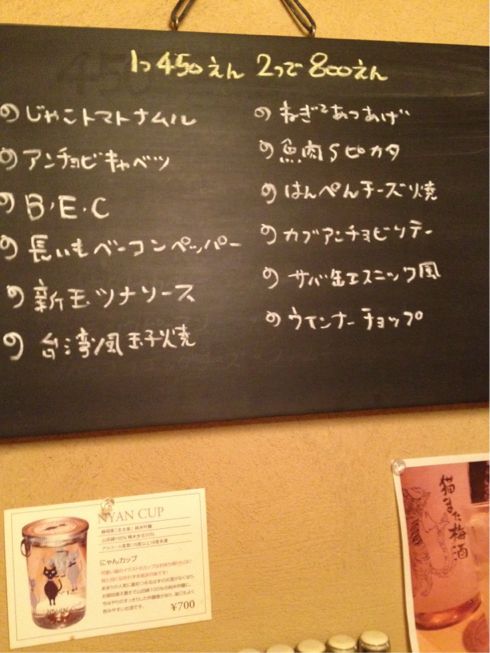 1つ 450えん 2つで 800えん
の じゃこトマトナムル
の アンチョビキャベツ
の B・E・C
の 長いもベーコンペッパー
の 新玉ツナソース
の 台湾風玉子焼
の ねぎみそあつあげ
の 魚肉Sピカタ
の はんぺんチーズ焼
の カブアンチョビソテー
の サバ缶エスニック風
の ウインナーチョップ
NYAN CUP
にゃんカップ
¥700
梅酒